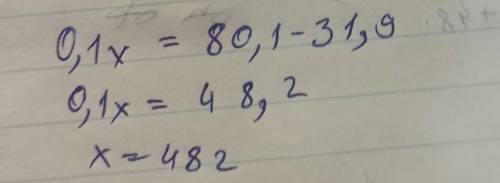 0,1x = 80,1-31,9
0,1x = 48,2
x = 482